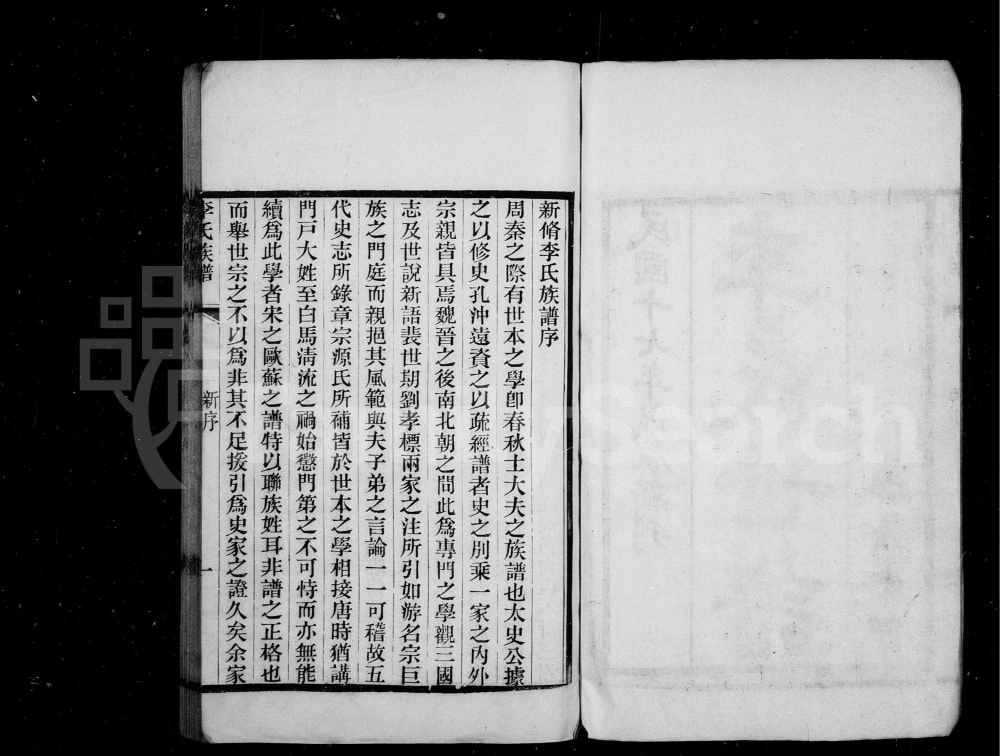 新脩李氏族譜序
周秦之際有世本之學卽春秋士大夫之族譜也太史公據
之以修史孔沖遠資之以疏經譜者史之別乘一家之內外
宗親皆具焉魏晉之後南北朝之間此爲專門之學觀三國
志及世說新語裴世期劉孝標兩家之注所引如游名宗巨
族之門庭而親挹其風範與夫子弟之言論一一可稽故五
代史志所錄章宗源氏所補皆於世本之學相接唐時猶講
門戶大姓至白馬淸流之禍始懲門第之不可恃而亦無能
續爲此學者宋之歐蘇之譜特以聯族姓耳非譜之正格也
而舉世宗之不以爲非其不足援引爲史家之證久矣余家
李氏族譜
新序
一